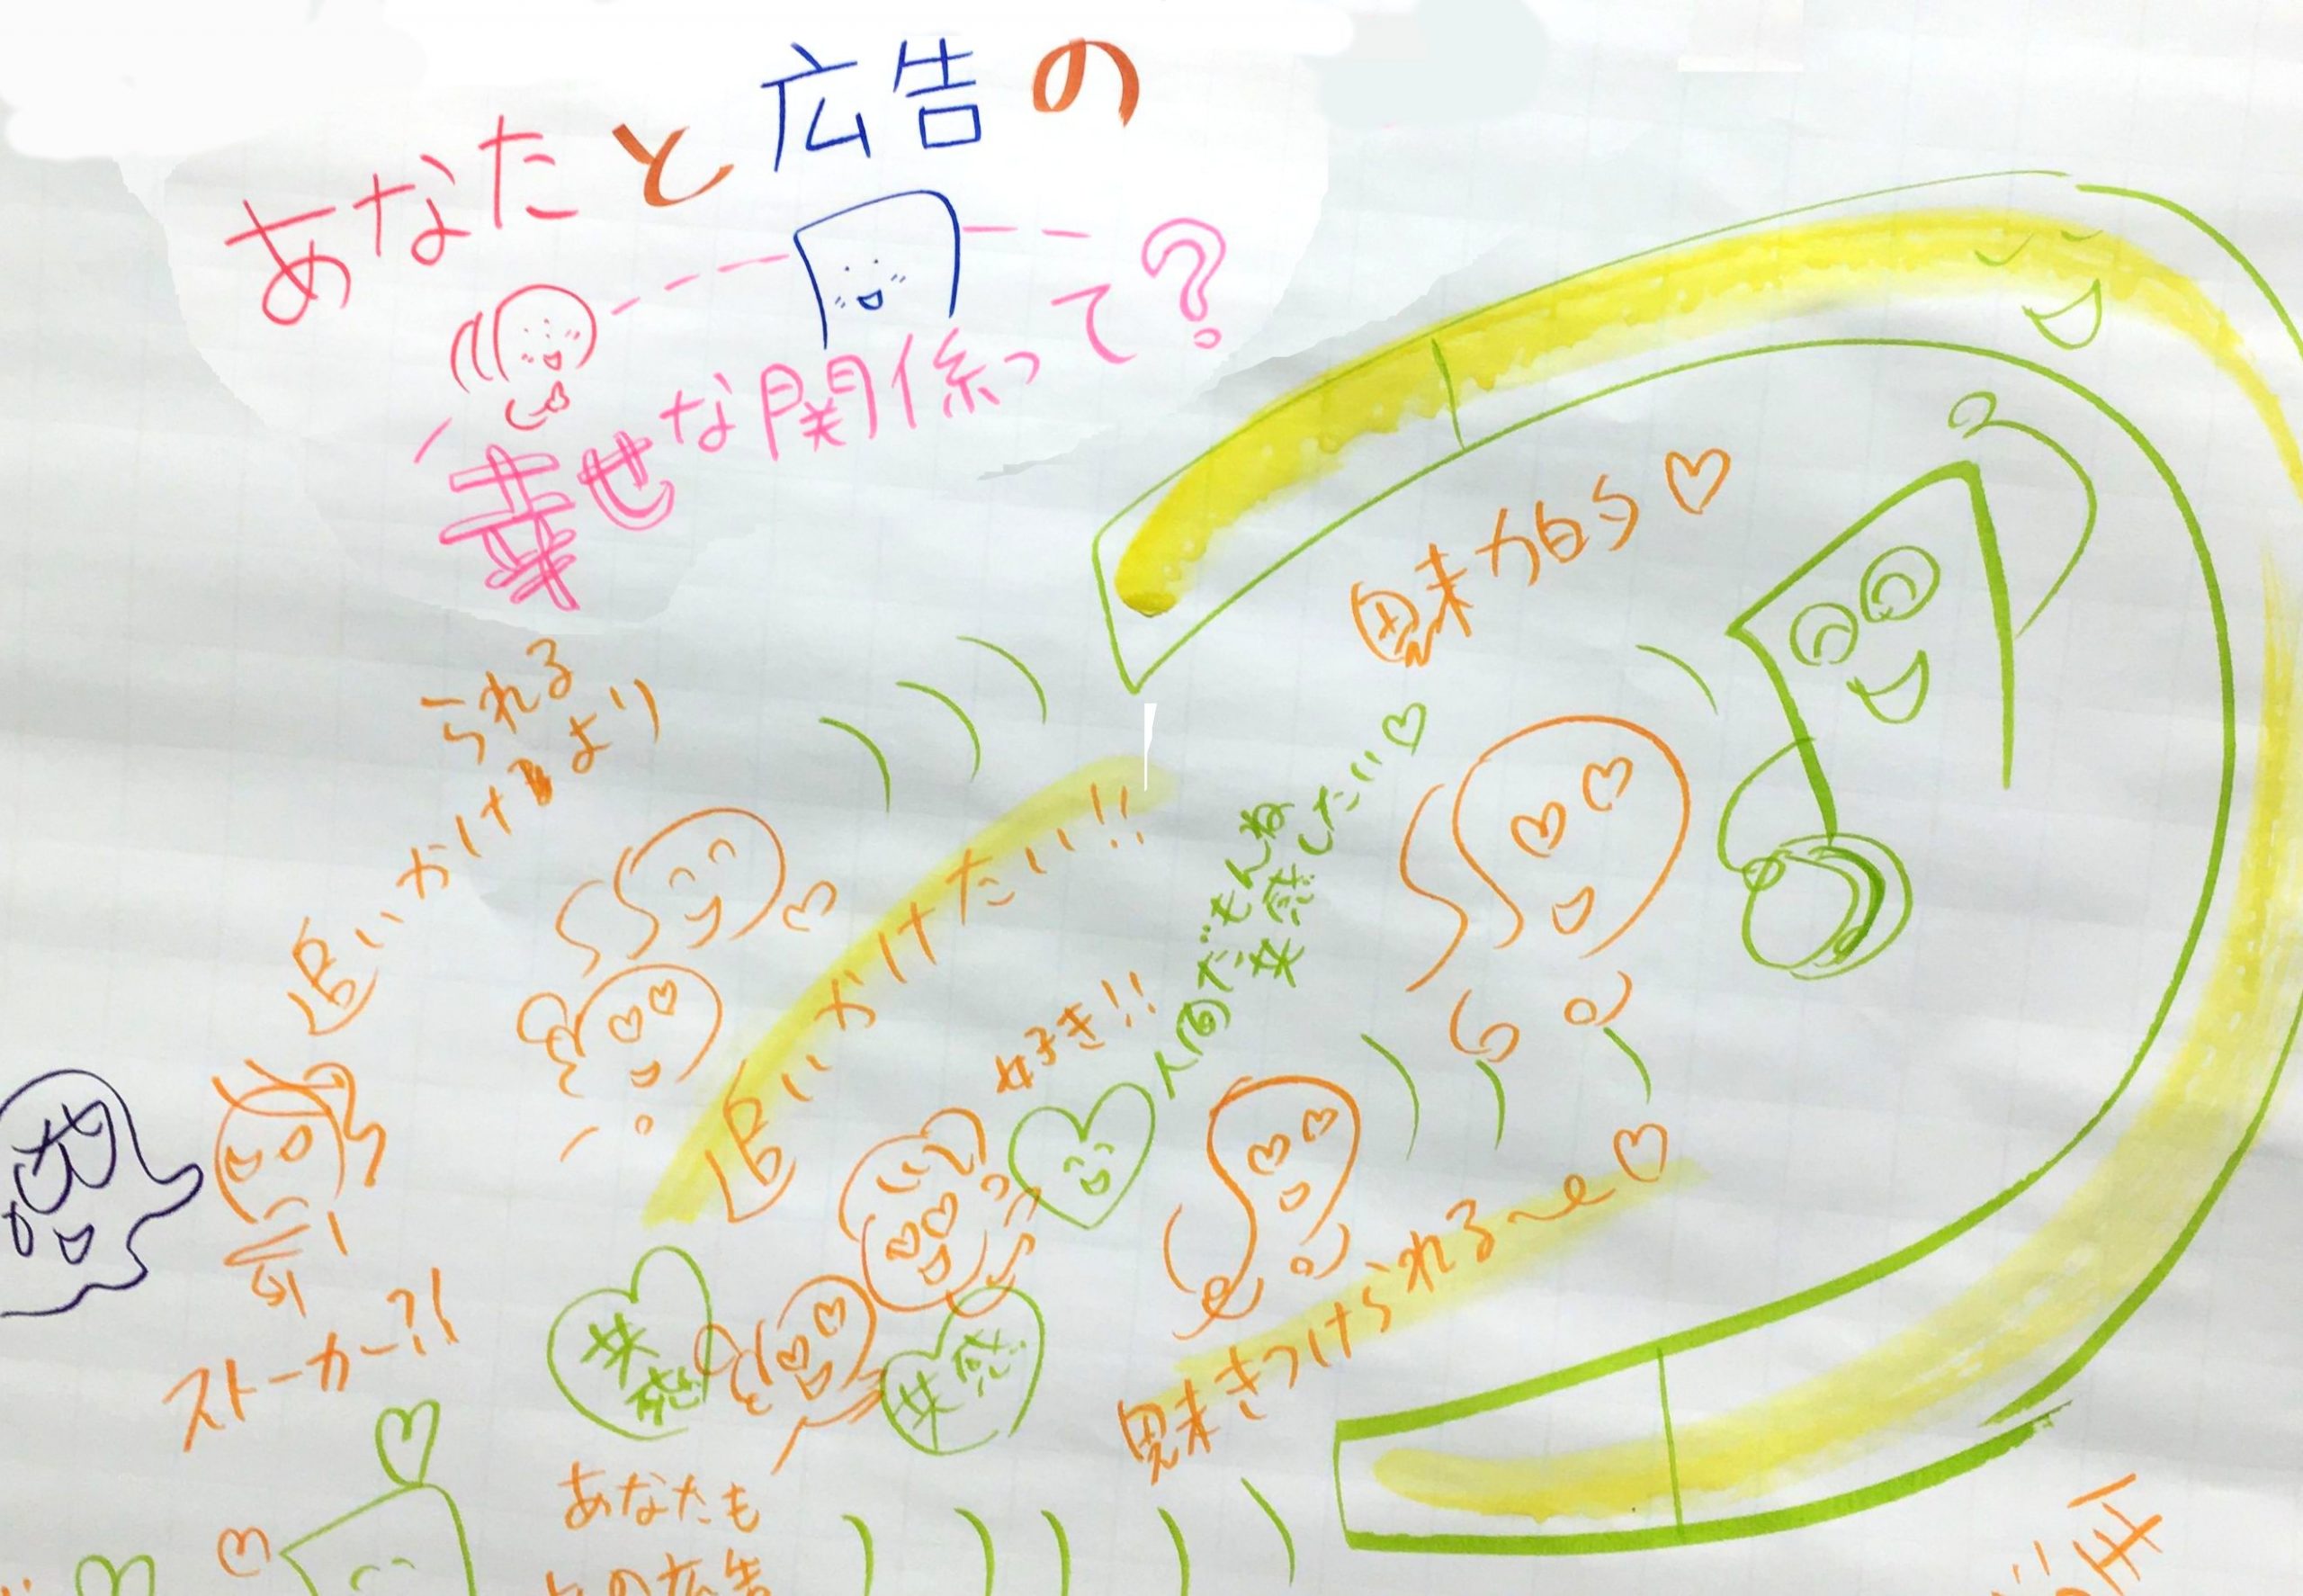 あなたと広告の
幸せな関係って?
魅力的♡
られる
追いかけるより
追いかけたい!!
人間だもんね
共感したい♡
好き!!
魅きつけられる〜♡
共感
共感
ストーカー?!
あなたも
この広告